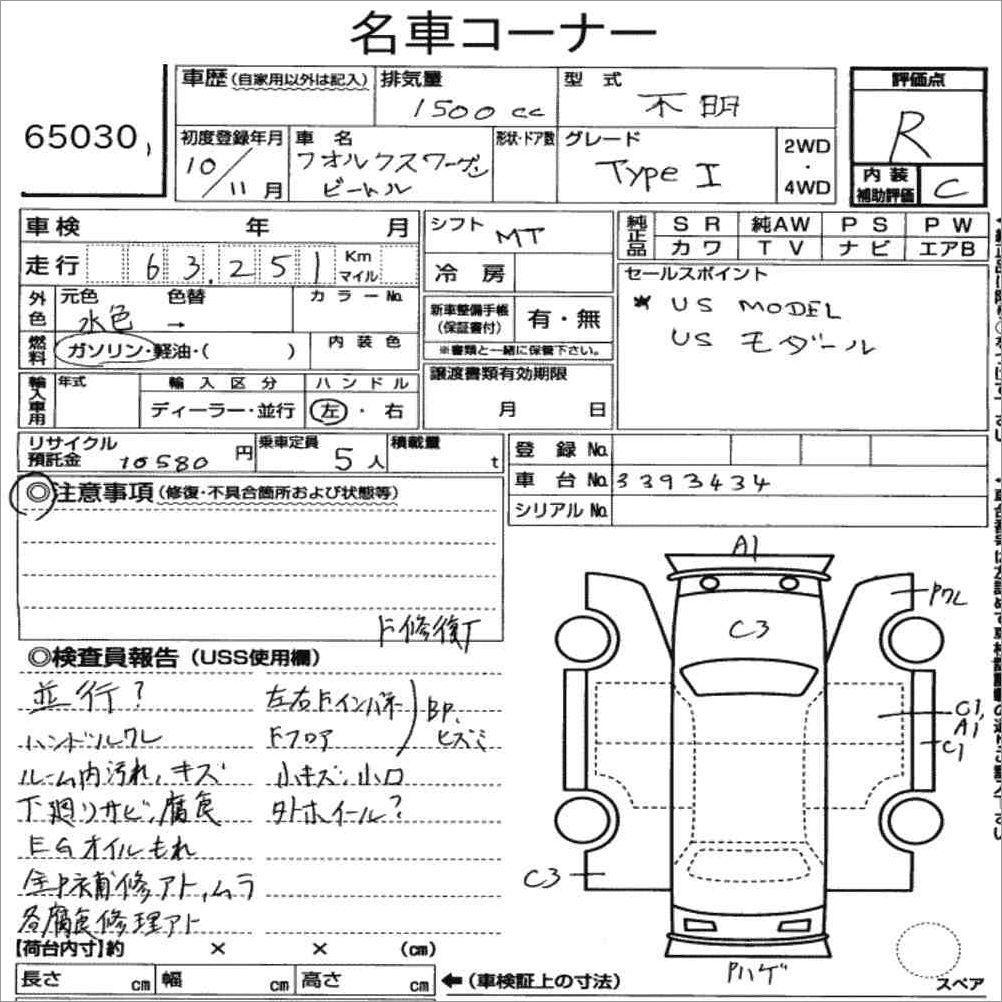 名車コーナー
65030
車歴(自家用以外は記入) 排気量 1500cc 型式 不明 評価点 R
初度登録年月 10/11月 車名 フオルクスワーゲン ビートル 形状・ドア数 グレード Type I 2WD・4WD 内装補助評価 C
車検 年 月 シフト MT 純正品 SR 純AW PS PW
カワ TV ナビ エアB
走行 63,251 Km マイル 冷房 セールスポイント
外色 元色 水色 色替 → カラーNo. 新車整備手帳(保証書付) 有・無 US MODEL
US モダール
燃料 ガソリン・軽油・( ) 内装色 ※書類と一緒に保管下さい。
輸入車用 年式 輸入区分 ハンドル 譲渡書類有効期限
ディーラー・並行 左・右 月 日
リサイクル預託金 10580円 乗車定員 5人 積載量 t 登録No.
車台No. 3393434
シリアルNo.
◎注意事項(修復・不具合箇所および状態等)
F修復T
A1
Pワレ
C3
◎検査員報告(USS使用欄)
並行? 左右Fインパネ BP,
ハンドルワレ Fフロア ヒズミ
C1
A1
C1
ルーム内汚れ,キズ 小キズ,小凹
下廻りサビ,腐食 タトホイール?
EGオイルもれ
C3
全P補修アト,ムラ
各腐食修理アト
【荷台内寸】約 × × (cm)
Pハゲ
スペア
長さ cm 幅 cm 高さ cm ←(車検証上の寸法)